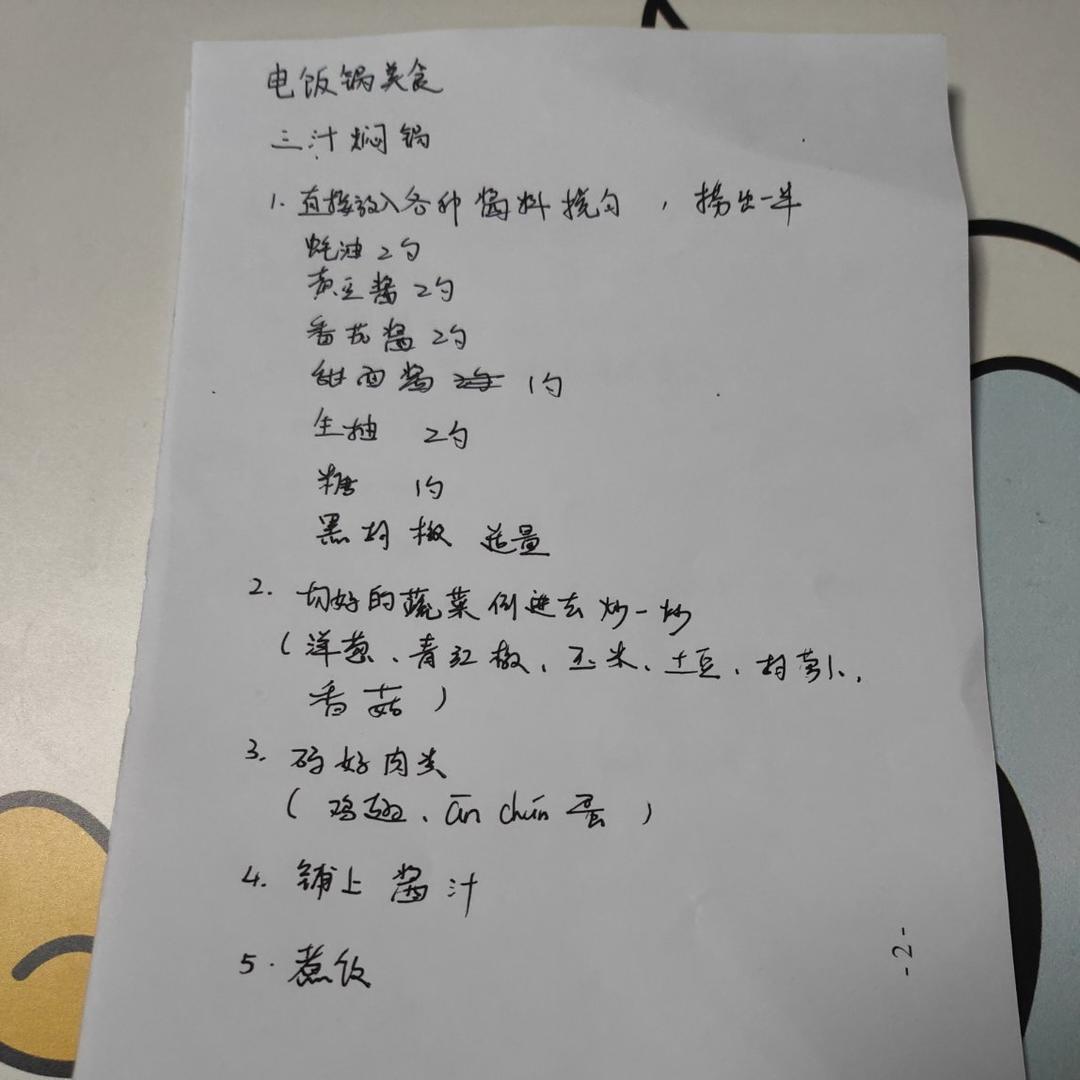 电饭锅美食
三汁焖锅
1. 直接放入各种酱料搅匀，捞出一半
蚝油 2勺
黄豆酱 2勺
番茄酱 2勺
甜面酱 1勺
生抽 2勺
糖 1勺
黑胡椒 适量
2. 切好的蔬菜倒进去炒一炒
(洋葱、青红椒、玉米、土豆、胡萝卜、
香菇)
3. 码好肉类
(鸡翅、ān chún 蛋)
4. 铺上酱汁
5. 煮饭
-2-